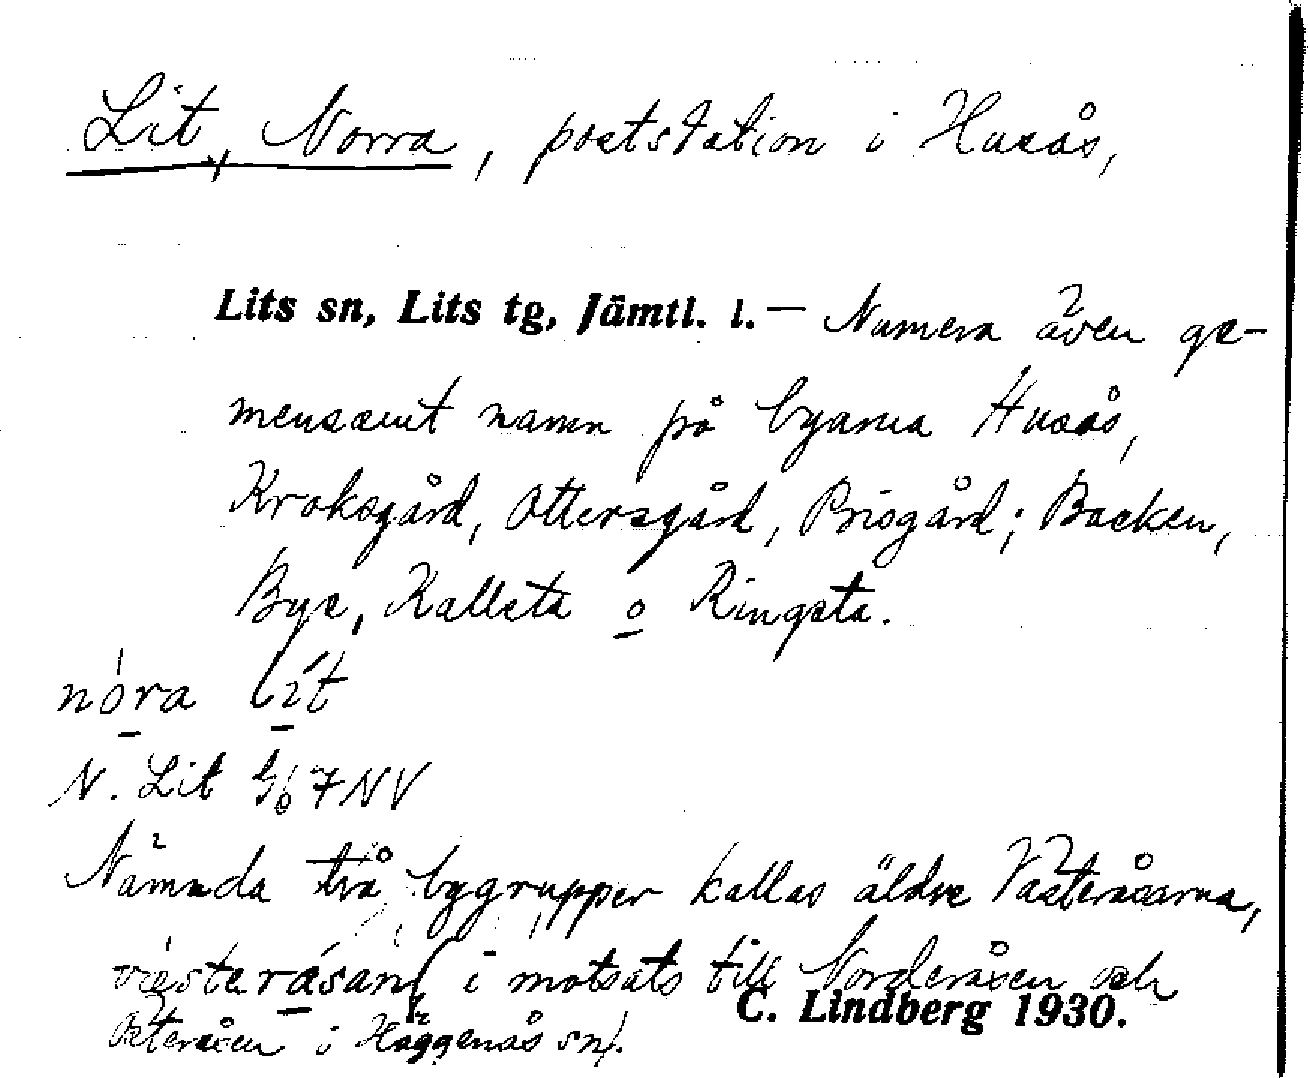 Lit, Norra, poststation i Husås,
Lits sn, Lits tg, Jämtl. l. — Numera även ge-
mensamt namn på byarna Husås,
Kroksgård, Ottersgård, Prisgård; Backen,
Bye, Kallsta o Ringsta.
nóra lít
N. Lit 7 NV
Nämnda två bygrupper kallas äldre Västeråsarna,
(i motsats till Norderåsen och
C. Lindberg 1930.
Österåsen i Häggenås sn).